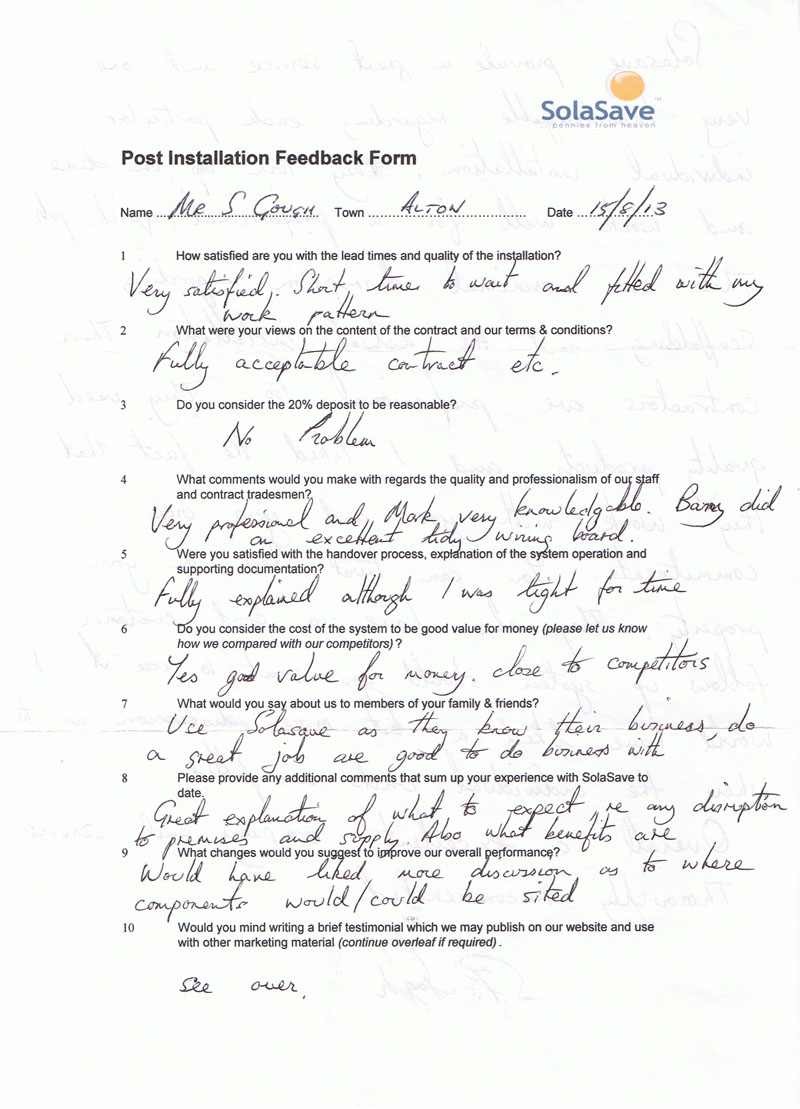 SolaSave™
pennies from heaven
Post Installation Feedback Form
Name ... Mr S Gough. Town ....... Alton ................ Date ... 15/8/13
1 How satisfied are you with the lead times and quality of the installation?
Very satisfied. Short time to wait and fitted with my
work pattern
2 What were your views on the content of the contract and our terms & conditions?
Fully acceptable contract etc.
3 Do you consider the 20% deposit to be reasonable?
No Problem
4 What comments would you make with regards the quality and professionalism of our staff
and contract tradesmen?
Very professional and, Mark very knowledgable. Barry did
an excellent tidy wiring board.
5 Were you satisfied with the handover process, explanation of the system operation and
supporting documentation?
Fully explained although I was tight for time
6 Do you consider the cost of the system to be good value for money (please let us know
how we compared with our competitors) ?
Yes good value for money. close to competitors
7 What would you say about us to members of your family & friends?
Use Solasave as they know their business, do
a great job are good to do business with
8 Please provide any additional comments that sum up your experience with SolaSave to
date.
Great explanation of what to expect, re any disruption
to premises and supply. Also what benefits are
9 What changes would you suggest to improve our overall performance?
Would have liked more discussion as to where
components would/could be sited
10 Would you mind writing a brief testimonial which we may publish on our website and use
with other marketing material (continue overleaf if required) .
See over.